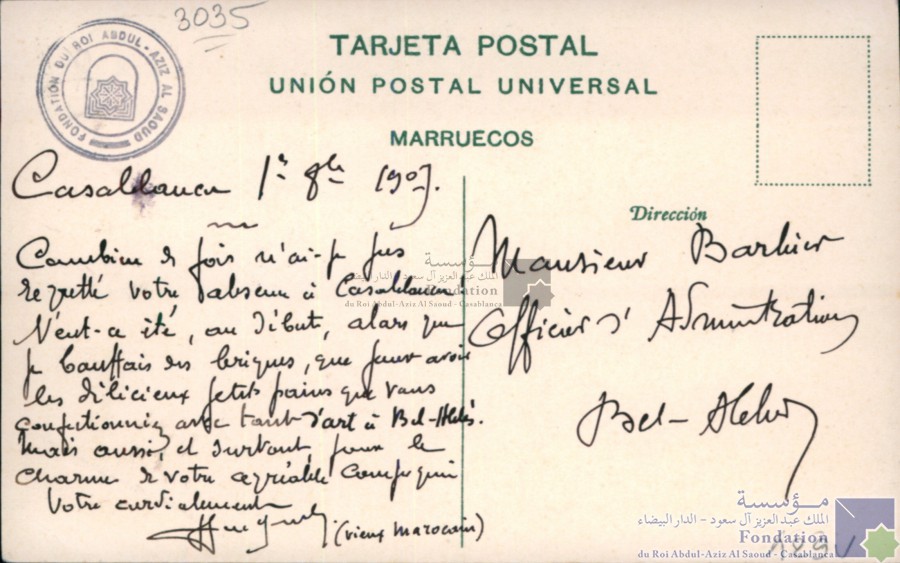 3035
FONDATION DU ROI ABDUL-AZIZ AL SAOUD
TARJETA POSTAL
UNIÓN POSTAL UNIVERSAL
MARRUECOS
Casablanca 1er 8bre 1907.
Dirección
Monsieur Barbier
Officier d'Administration
Bel-
Combien de fois n'ai-je pas
regretté votre absence à Casablanca
N'eut-ce été, au début, alors que
je bouffais des briques, que pour avoir
les délicieux petits pains que vous
confectionniez avec tant d'art à Bel-
Mais aussi, et surtout, pour le
charme de votre agréable compagnie
Votre cordialement
(vieux marocain)
مؤسسة
الملك عبد العزيز آل سعود - الدار البيضاء
Fondation
du Roi Abdul-Aziz Al Saoud - Casablanca
مؤسسة
الملك عبد العزيز آل سعود - الدار البيضاء
Fondation
du Roi Abdul-Aziz Al Saoud - Casablanca